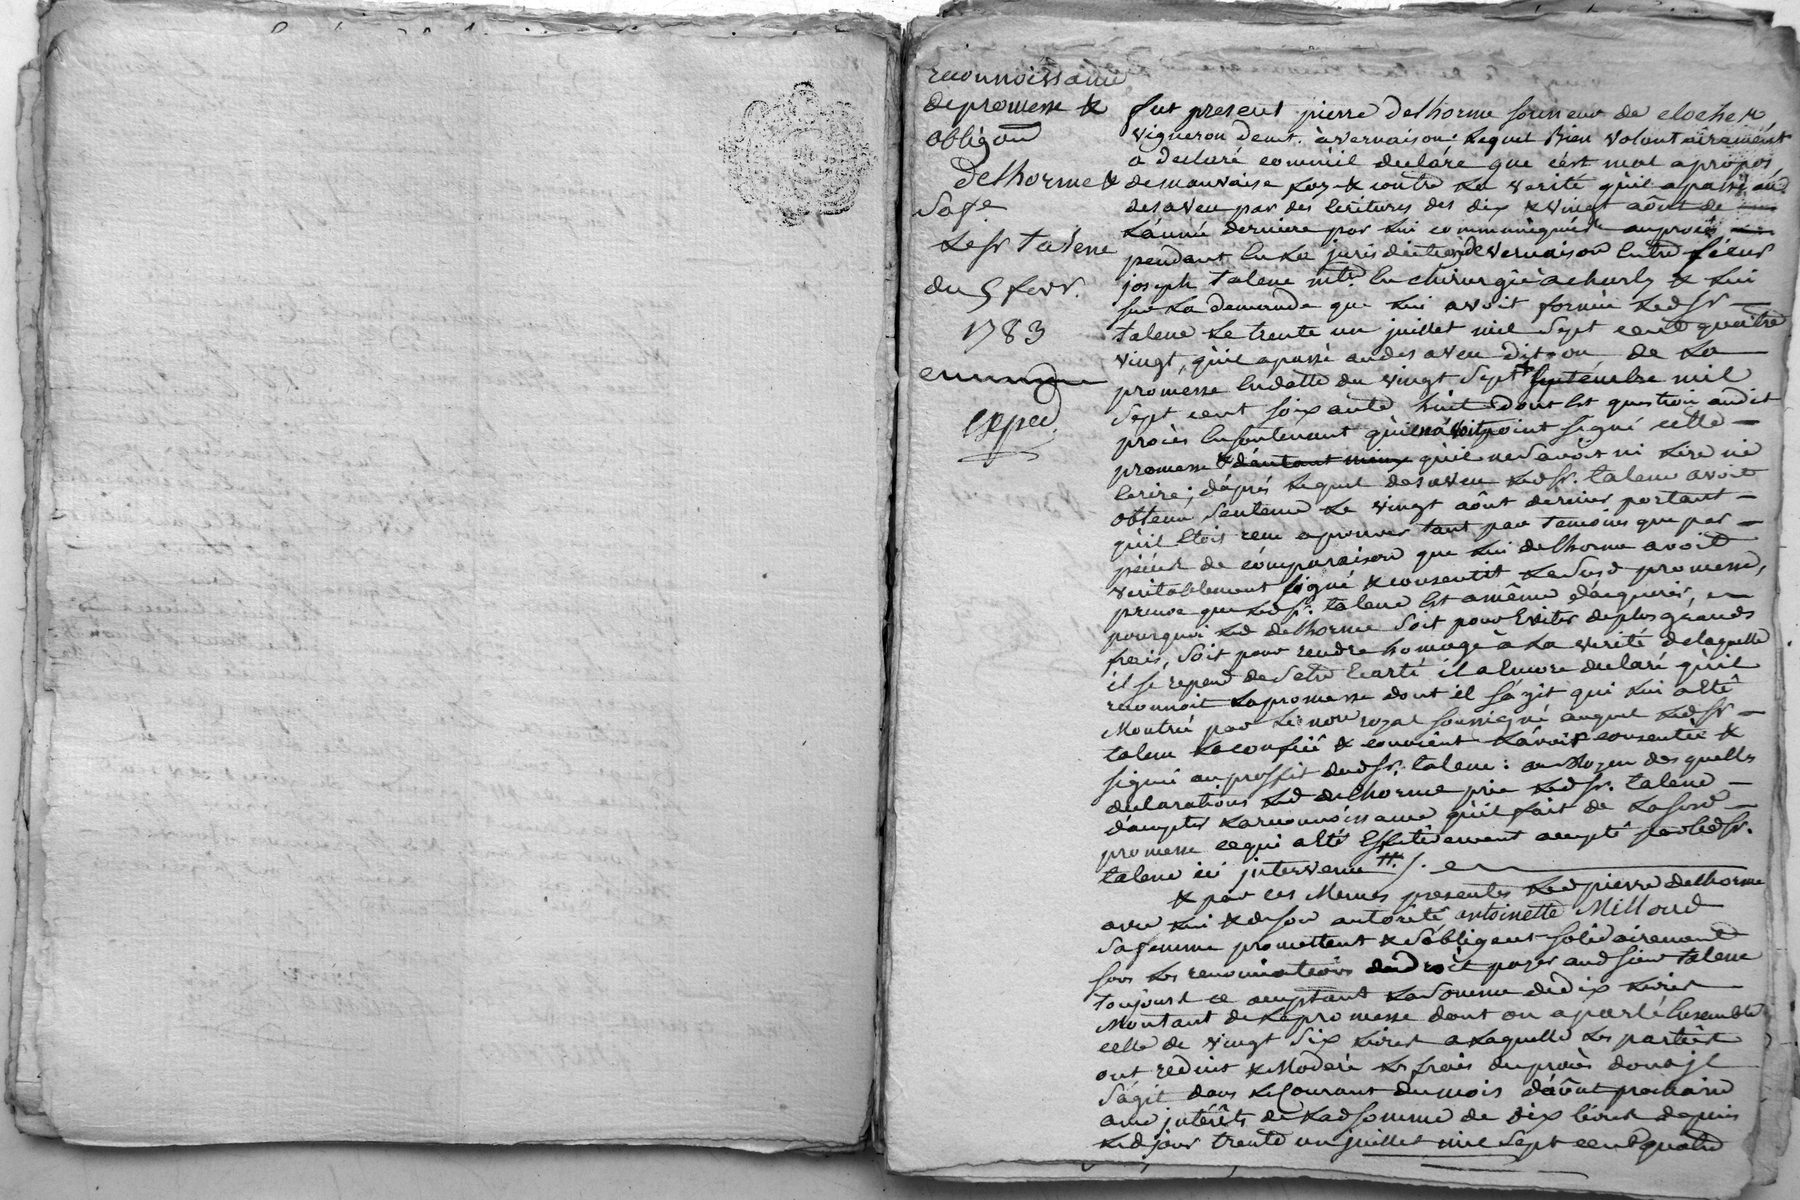 reconnoissance
de promesse &
obligaon
delhorme &
sa fe
Le sr talene
du 5 fevr.
1783
exped.
fut present pierre delhorme sonneur de cloche &
vigneron demt. à vernaison: Lequel Bien volontairement
a declaré comm'il declare que c'est mal apropos,
de mauvaise foy & contre La verité qu'il a passé au
desaveu par des Ecritures des dix & vingt aôut de
L'année derniere par Lui communiquées au procès
pendant En La jurisdiction de vernaison Entre sieur
joseph talene mtre En chirurgie à charly & Lui
sur La demande que Lui avoit formée Ledsr
talene Le trente un juillet mil sept cent quatre
vingt, qu'il a passé au desaveu dit-on de La
promesse En datte du vingt sept septembre mil
sept cent soixante huit dont Est question audit
procès En soutenant qu'il n'avoit point signé cette
promesse & d'autant mieux qu'il ne savoit ni Lire ni
Ecrire; d'après Lequel desaveu Ledsr. talene avoit
obtenu sentence Le vingt aôut dernier portant
qu'il Etoit reçu a prouver tant par temoins que par
pièces de comparaison que Lui delhorme avoit
veritablement signé & consentit La susd promesse,
preuve que Ledsr. talene Est a même d'acquerir,
pourquoi Led delhorme soit pour Eviter de plus grands
frais, soit pour rendre homage à La verité de laquelle
il se repend de s'etre Ecarté il a Encore declaré qu'il
reconnoit La promesse dont il s'agit qui Lui a Eté
Montrée par Le nore royal soussigné auquel Ledsr
talene La confiée & convient L'avoir consentie &
signée au proffit dudsr. talene: au Moyen des quelles
declarations Led delhorme prie Ledsr. talene
d'accepter La reconnoissance qu'il fait de La susd
promesse ce qui a Eté Effectivement accepté par Ledsr.
talene ici intervenu
& par ces Memes presentes Led pierre delhorme
avec Lui & de son autorité antoinette Milloud
sa femme promettent & s'obligent solidairement
sous Les renonciations de droit payer aud sieur talene
toujours ce acceptant La somme de dix Livres
Montant de La promesse dont on a parlé Ensemble
celle de vingt six Livres a Laquelle Les parties
ont reduit & Moderé Les frais du procès dont il
s'agit dans Le Courant du mois d'aôut prochain
avec intérêts de Lad somme de dix livres depuis
Led jour trente un juillet mil sept cent quatre